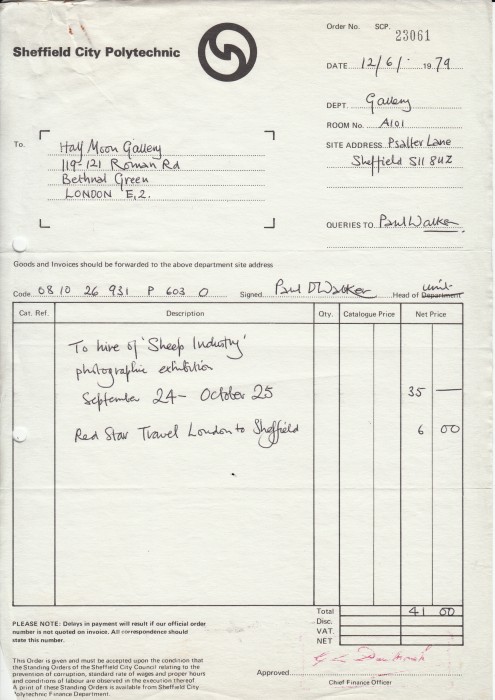 Sheffield City Polytechnic
Order No. SCP.
23061
DATE 12/6/ 1979
DEPT. Gallery
ROOM No. A101
SITE ADDRESS Psalter Lane
Sheffield S11 8UZ
To. Half Moon Gallery
119-121 Roman Rd
Bethnal Green
LONDON E.2.
QUERIES TO Paul Walker
Goods and Invoices should be forwarded to the above department site address
Code 08 10 26 931 P 603 0 Signed Paul D Walker Head of Department unit
Cat. Ref. Description Qty. Catalogue Price Net Price
To hire of 'Sheep Industry'
photographic exhibition
September 24 - October 25 35 —
Red Star Travel London to Sheffield 6 00
Total 41 00
Disc.
VAT.
NET
PLEASE NOTE: Delays in payment will result if our official order
number is not quoted on invoice. All correspondence should
state this number.
This Order is given and must be accepted upon the condition that
the Standing Orders of the Sheffield City Council relating to the
prevention of corruption, standard rate of wages and proper hours
and conditions of labour are observed in the execution thereof.
A print of these Standing Orders is available from Sheffield City
Polytechnic Finance Department.
Approved
Chief Finance Officer